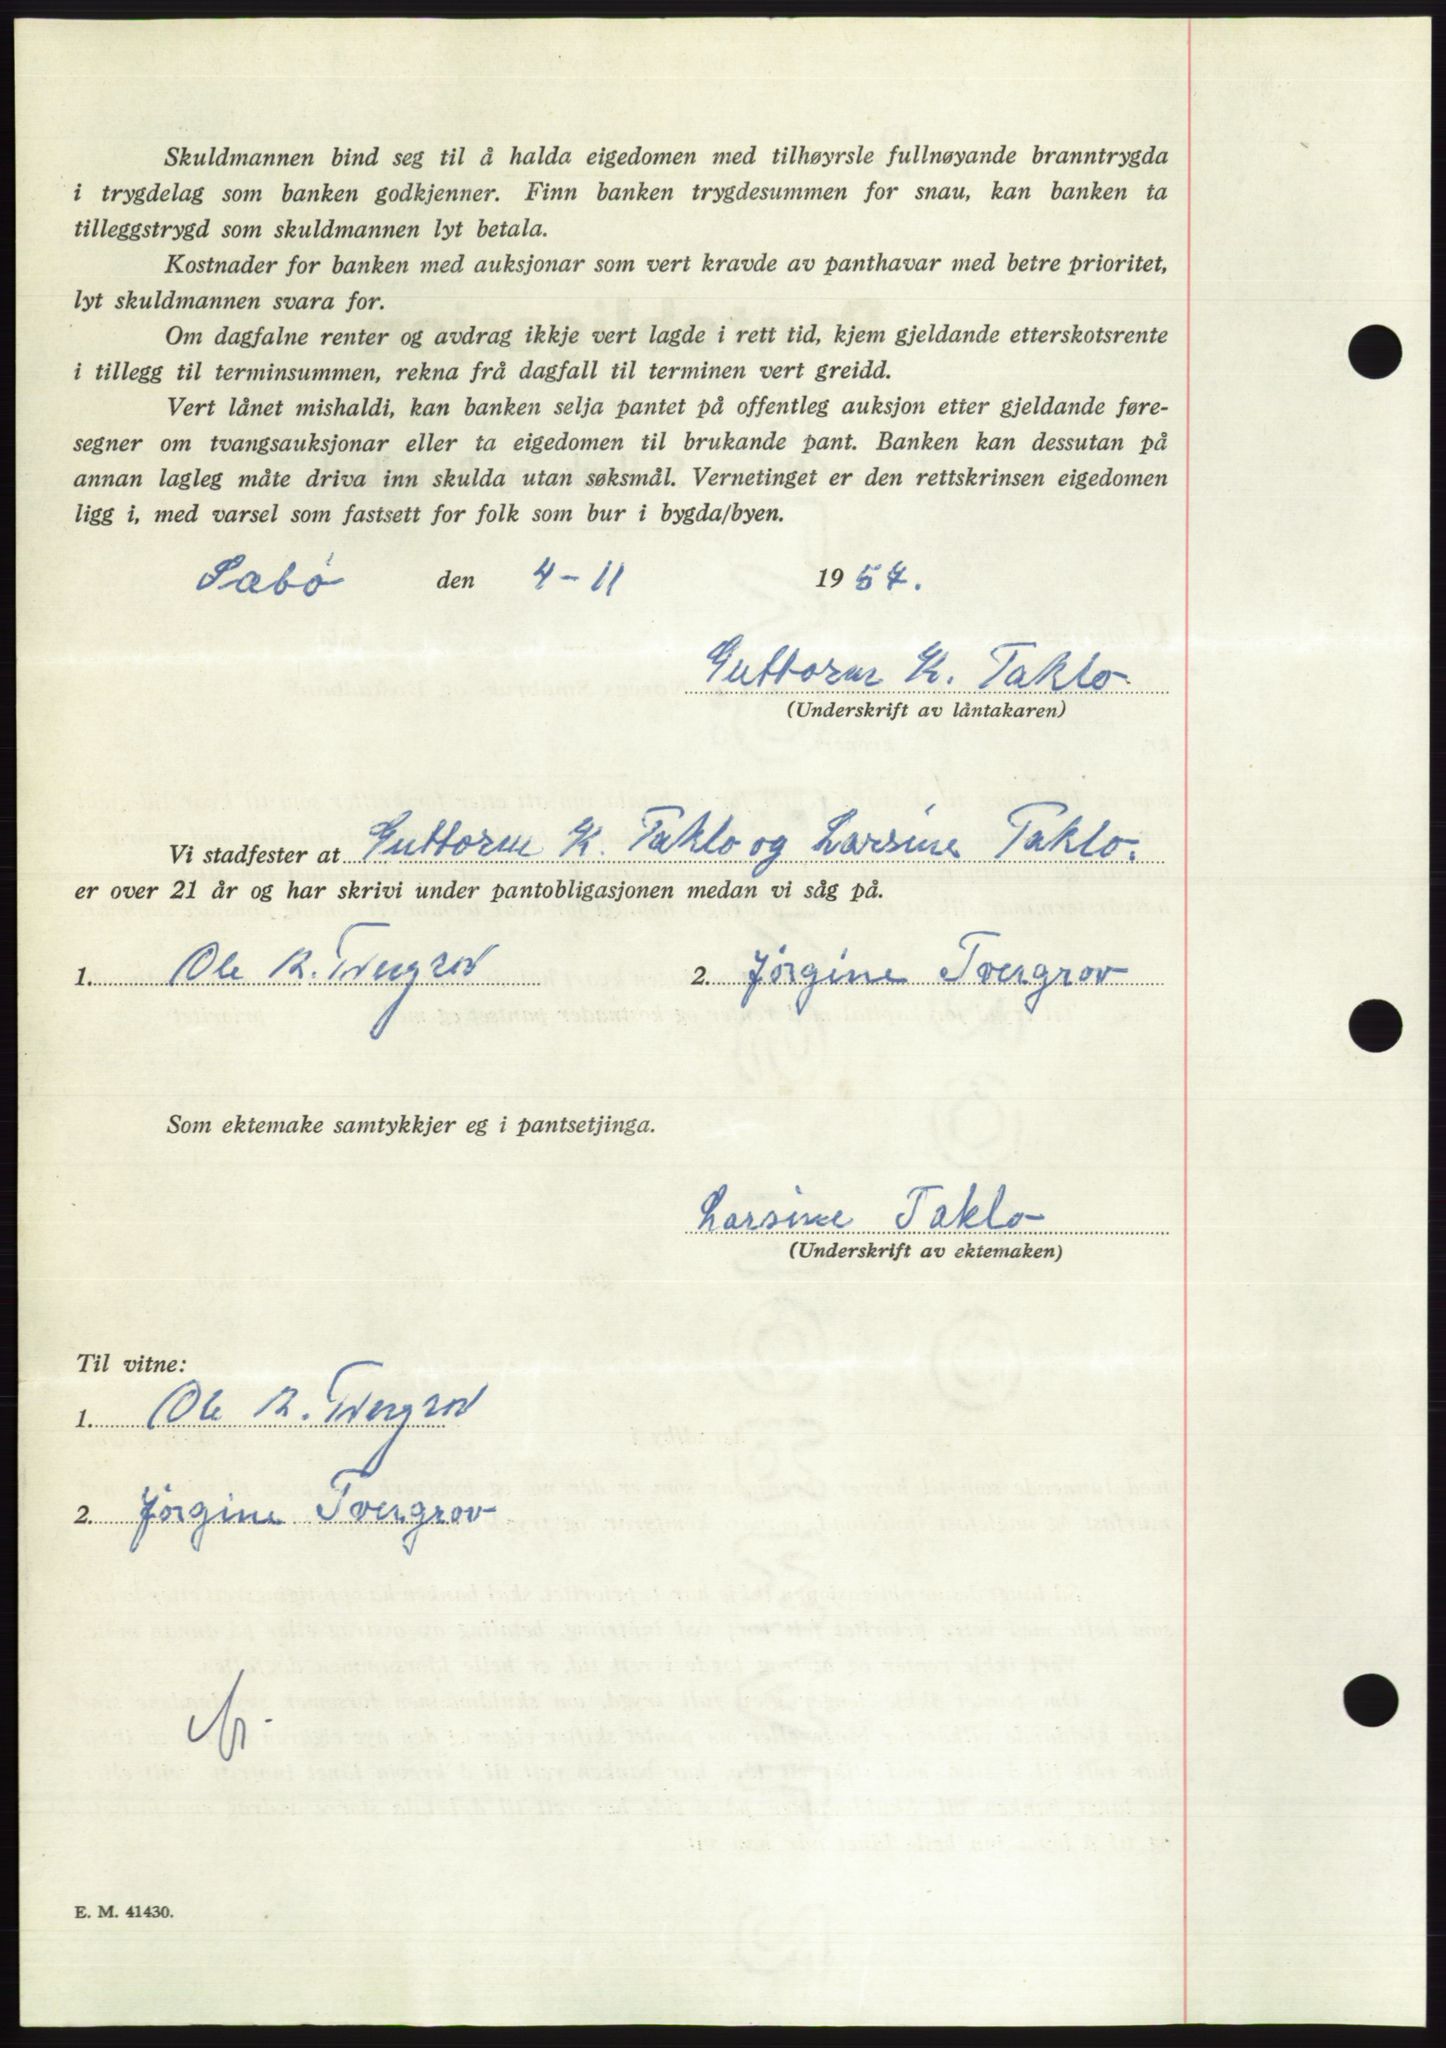 Skuldmannen bind seg til å halda eigedomen med tilhøyrsle fullnøyande branntrygda
i trygdelag som banken godkjenner. Finn banken trygdesummen for snau, kan banken ta
tilleggstrygd som skuldmannen lyt betala.
Kostnader for banken med auksjonar som vert kravde av panthavar med betre prioritet,
lyt skuldmannen svara for.
Om dagfalne renter og avdrag ikkje vert lagde i rett tid, kjem gjeldande etterskotsrente
i tillegg til terminsummen, rekna frå dagfall til terminen vert greidd.
Vert lånet mishaldi, kan banken selja pantet på offentleg auksjon etter gjeldande føre-
segner om tvangsauksjonar eller ta eigedomen til brukande pant. Banken kan dessutan på
annan lagleg måte driva inn skulda utan søksmål. Vernetinget er den rettskrinsen eigedomen
ligg i, med varsel som fastsett for folk som bur i bygda/byen.
Sæbö den 4-11 1957.
Guttorm K. Taklo
(Underskrift av låntakaren)
Vi stadfester at Guttorm K. Taklo og Larsine Taklo.
er over 21 år og har skrivi under pantobligasjonen medan vi såg på.
1. Ole K. Tvergrov 2. Jörgine Tvergrov
Som ektemake samtykkjer eg i pantsetjinga.
Larsine Taklo
(Underskrift av ektemaken)
Til vitne:
1. Ole K. Tvergrov
2. Jörgine Tvergrov
E. M. 41430.